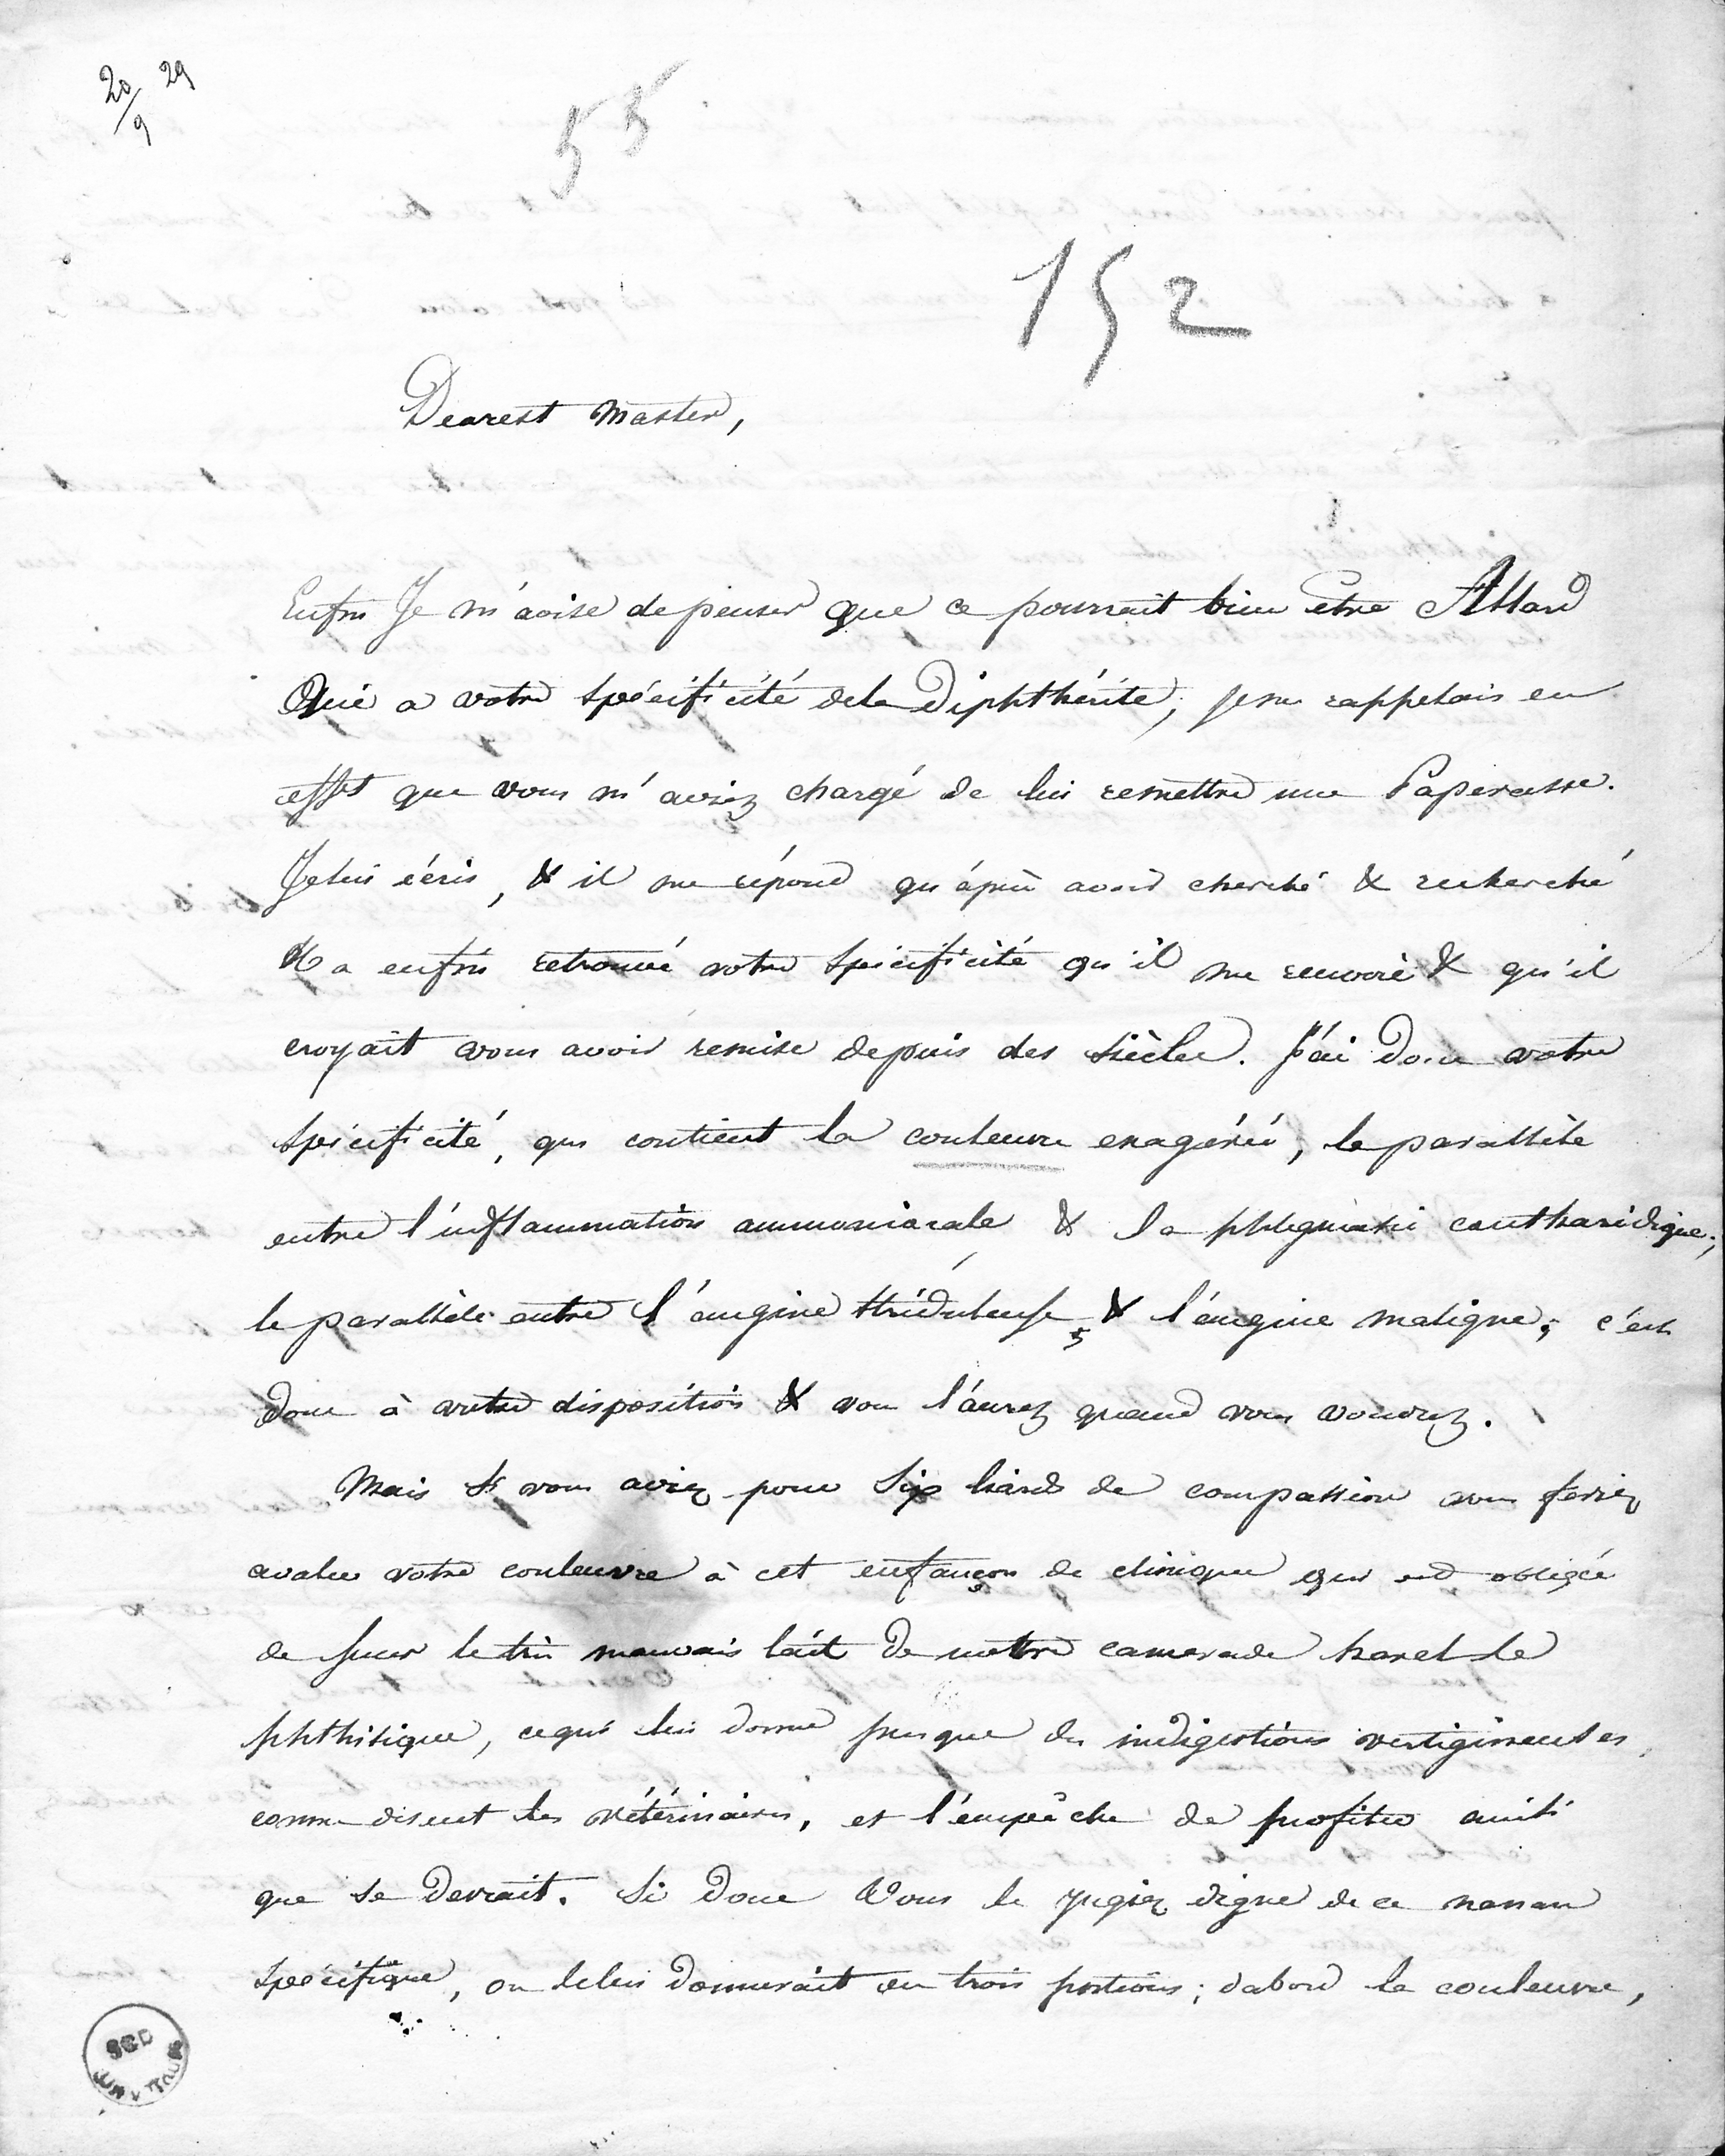 20/9 29
55
152
Dearest master,
Enfin Je m'avise de penser que ce pourrait bien être Allard
Qui a votre spécificité de la Diphthérite; je me rappelais en
effet que vous m'aviez chargé de lui remettre une Paperasse.
Je lui écris, & il me répond qu'après avoir cherché & recherché
Il a enfin retrouvé votre spécificité qu'il me renvoie & qu'il
croyait vous avoir remise depuis des siècles. J'ai donc votre
spécificité, qui contient la couleuvre exagérée, le parallèle
entre l'inflammation ammoniacale & la phlegmasie cantharidique;
le parallèle entre l'angine striduleuse & l'angine maligne; c'est
donc à votre disposition & vous l'aurez quand vous voudrez.
Mais si vous aviez pour six liards de compassion vous feriez
avaler votre couleuvre à cet enfançon de clinique qui est obligée
de sucer le très mauvais lait de notre camarade harel le
phthisique, ce qui lui donne presque des indigestions vertigineuses,
comme disent les vétérinaires, et l'empêche de profiter ainsi
que se devrait. Si donc Vous le jugiez digne de ce nanan
spécifique, on le lui donnerait en trois portions; dabord la couleuvre,
SCD
UNIV TOURS